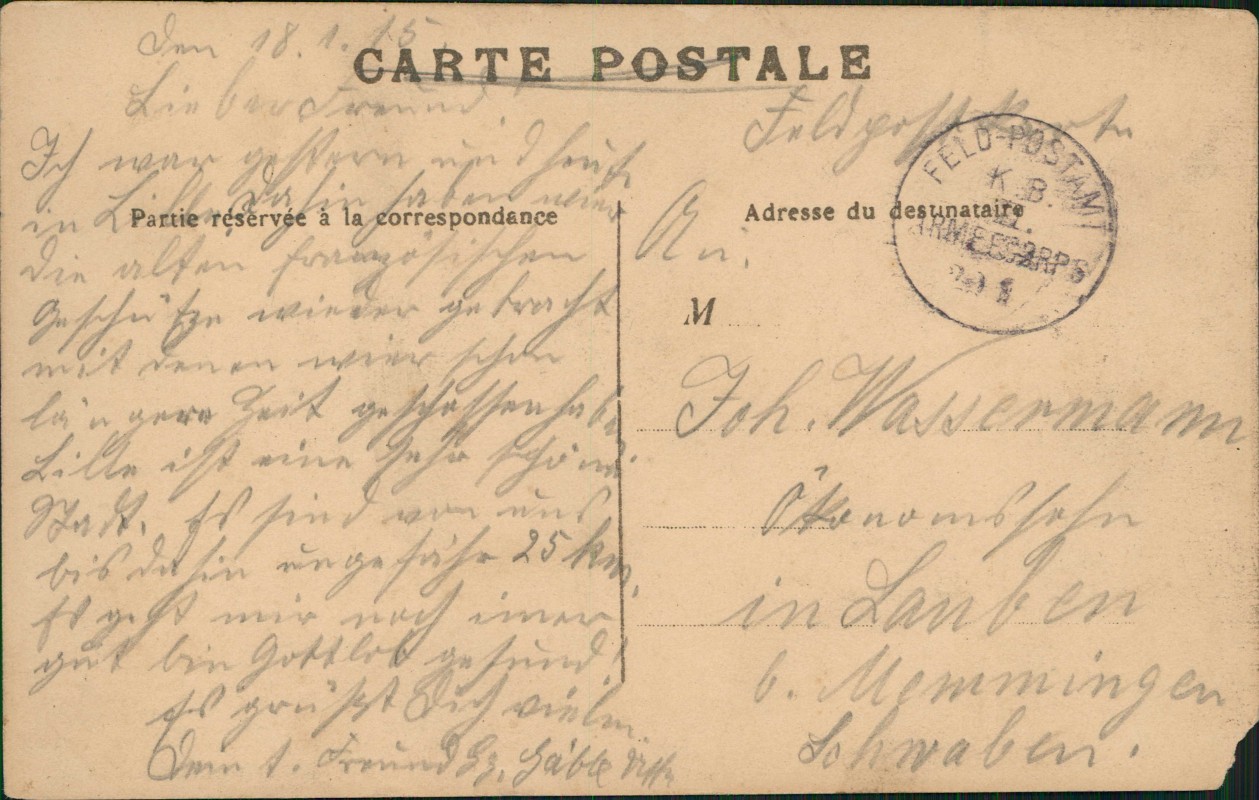 Den 18.1.15.
CARTE POSTALE
Lieber Freund
Ich war gestern und heute
in Lille. Dahin haben wier
die alten französischen
Geschütze wieder gebracht
mit denen wier schon
längere Zeit geschossen haben
Lille ist eine sehr schöne
Stadt. Es sind von uns
bis dahin ungefähr 25 km.
Es geht mir noch imer
gut bin Gottlob gesund!
Es grüßt Dich vielm.
Dein t. Freund
Partie réservée à la correspondance
Feldpostkarte
FELD-POSTAMT
K.B.
II.
ARMEECORPS
An.
Adresse du destinataire
M
Joh. Wassermann
Ökonomssohn
in Lauben
b. Memmingen
Schwaben.